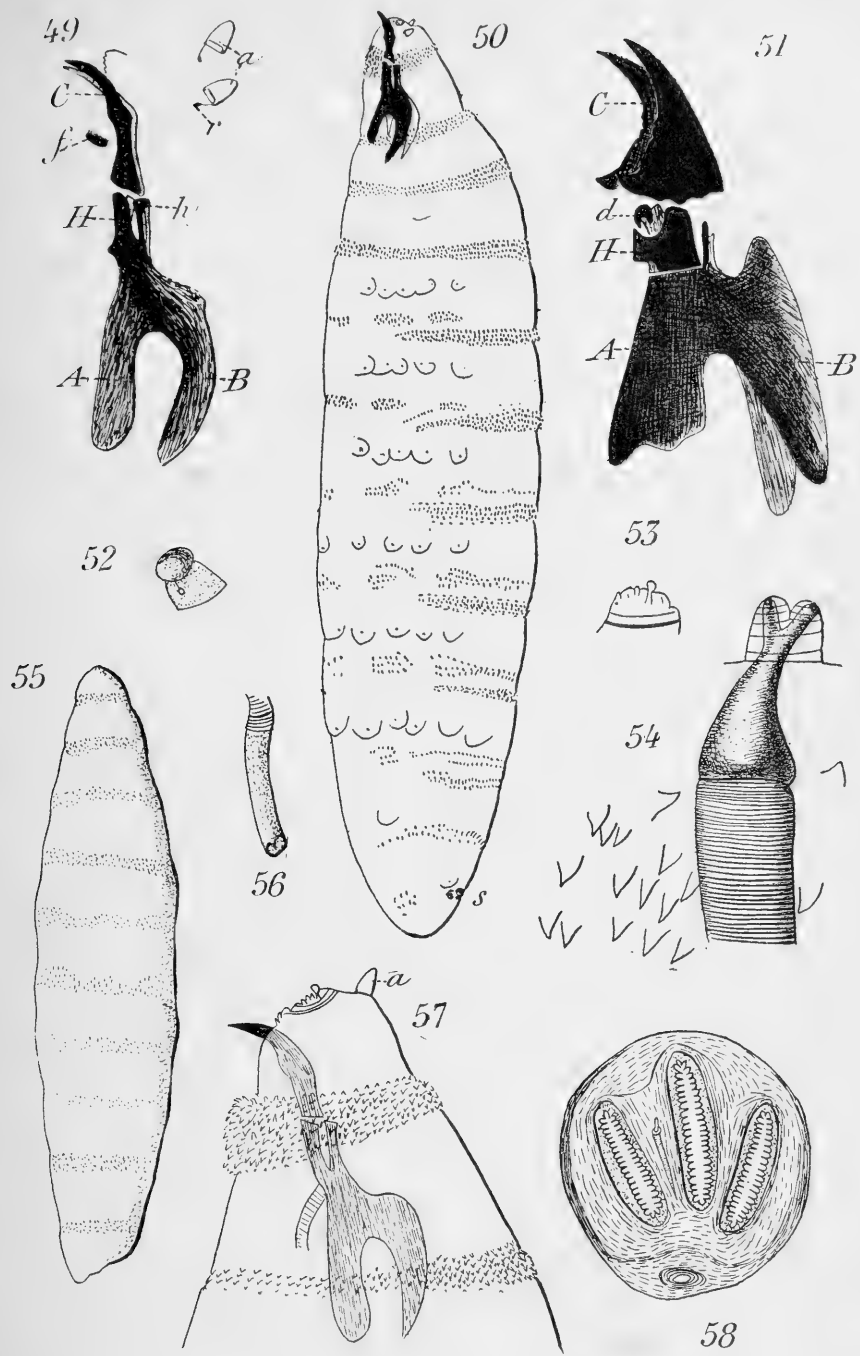 49
a
r
C
f
H
h
A
B
50
s
51
C
d
H
A
B
52
53
54
55
56
57
a
58